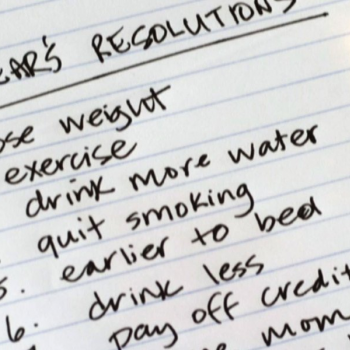 EAR'S RESOLUTIONS
ose weight
exercise
drink more water
quit smoking
5. earlier to bed
6. drink less
pay off credit
mom